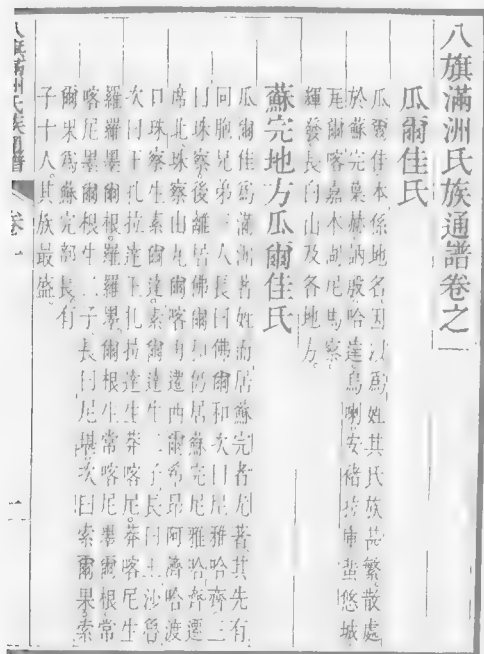 八旗滿洲氏族通譜卷之一
瓜爾佳氏
瓜爾佳本係地名因以爲姓其氏族甚繁散處
於蘇完葉赫訥殷哈達烏喇安褚拉庫蜚悠城
瓦爾喀嘉木湖尼馬察
輝發長白山及各地方
蘇完地方瓜爾佳氏
瓜爾佳爲滿洲著姓而居蘇完者尤著其先有
同胞兄弟三人長曰佛爾和次曰尼雅哈齊三
曰珠察後離居佛爾和仍居蘇完尼雅哈齊遷
席北珠察山瓦爾喀再遷西爾希昂阿濟哈渡
口珠察生素爾達素爾達生二子長曰土沙魯
次曰王扎拉達王扎拉達生莽喀尼莽喀尼生
羅羅墨爾根羅羅墨爾根生常喀尼墨爾根常
喀尼墨爾根生二子長曰尼堪次曰索爾果索
爾果爲蘇完部長有
子十人其族最盛
八旗滿洲氏族通譜 卷一
一